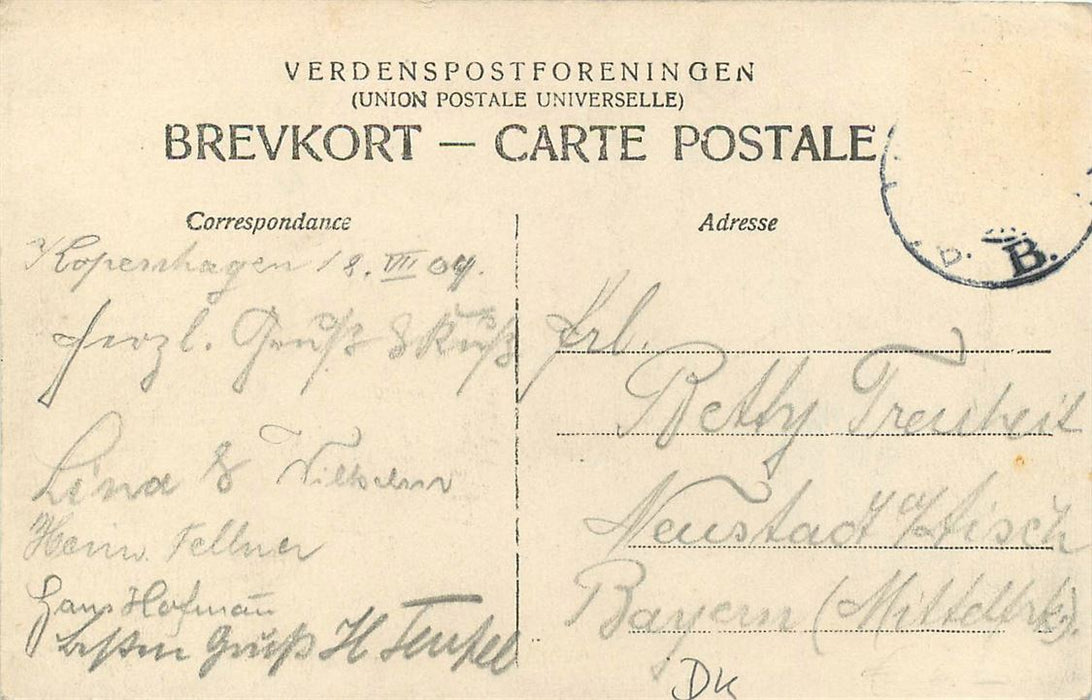 VERDENSPOSTFORENINGEN
(UNION POSTALE UNIVERSELLE)
BREVKORT — CARTE POSTALE
Correspondance
Kopenhagen 18. VII 09.
Herzl. Gruß & Kuß
Lina & Wilhelm
Heinr. Fellner
Hans Hofmañ
Besten Gruß H
Adresse
Frl.
Betty Treuheit
Neustadt a/Aisch
Bayern (Mittelfrk).
B. B.
DK